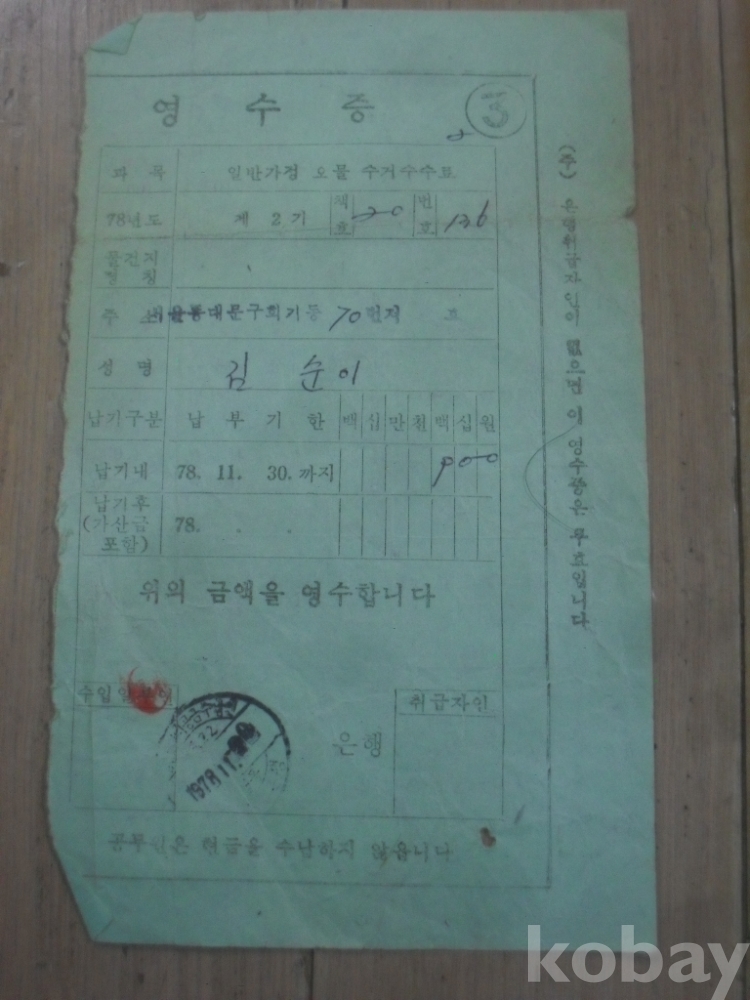 영 수 증 ③
과 목 일반가정 오물 수거수수료
78년도 제 2 기 책호 20 번호 136
물건지
명 칭
주 소 서울동대문구회기동 70 번지 호
성 명 김 순이
납기구분 납 부 기 한 백 십 만 천 백 십 원
납기내 78. 11. 30. 까지 900
납기후
(가산금 78. . .
포함)
위의 금액을 영수합니다
수입일부인 취급자인
은행
1978.11.
공무원은 현금을 수납하지 않읍니다
(주) 은행취급자인이 없으면 이 영수증은 무효입니다
kobay